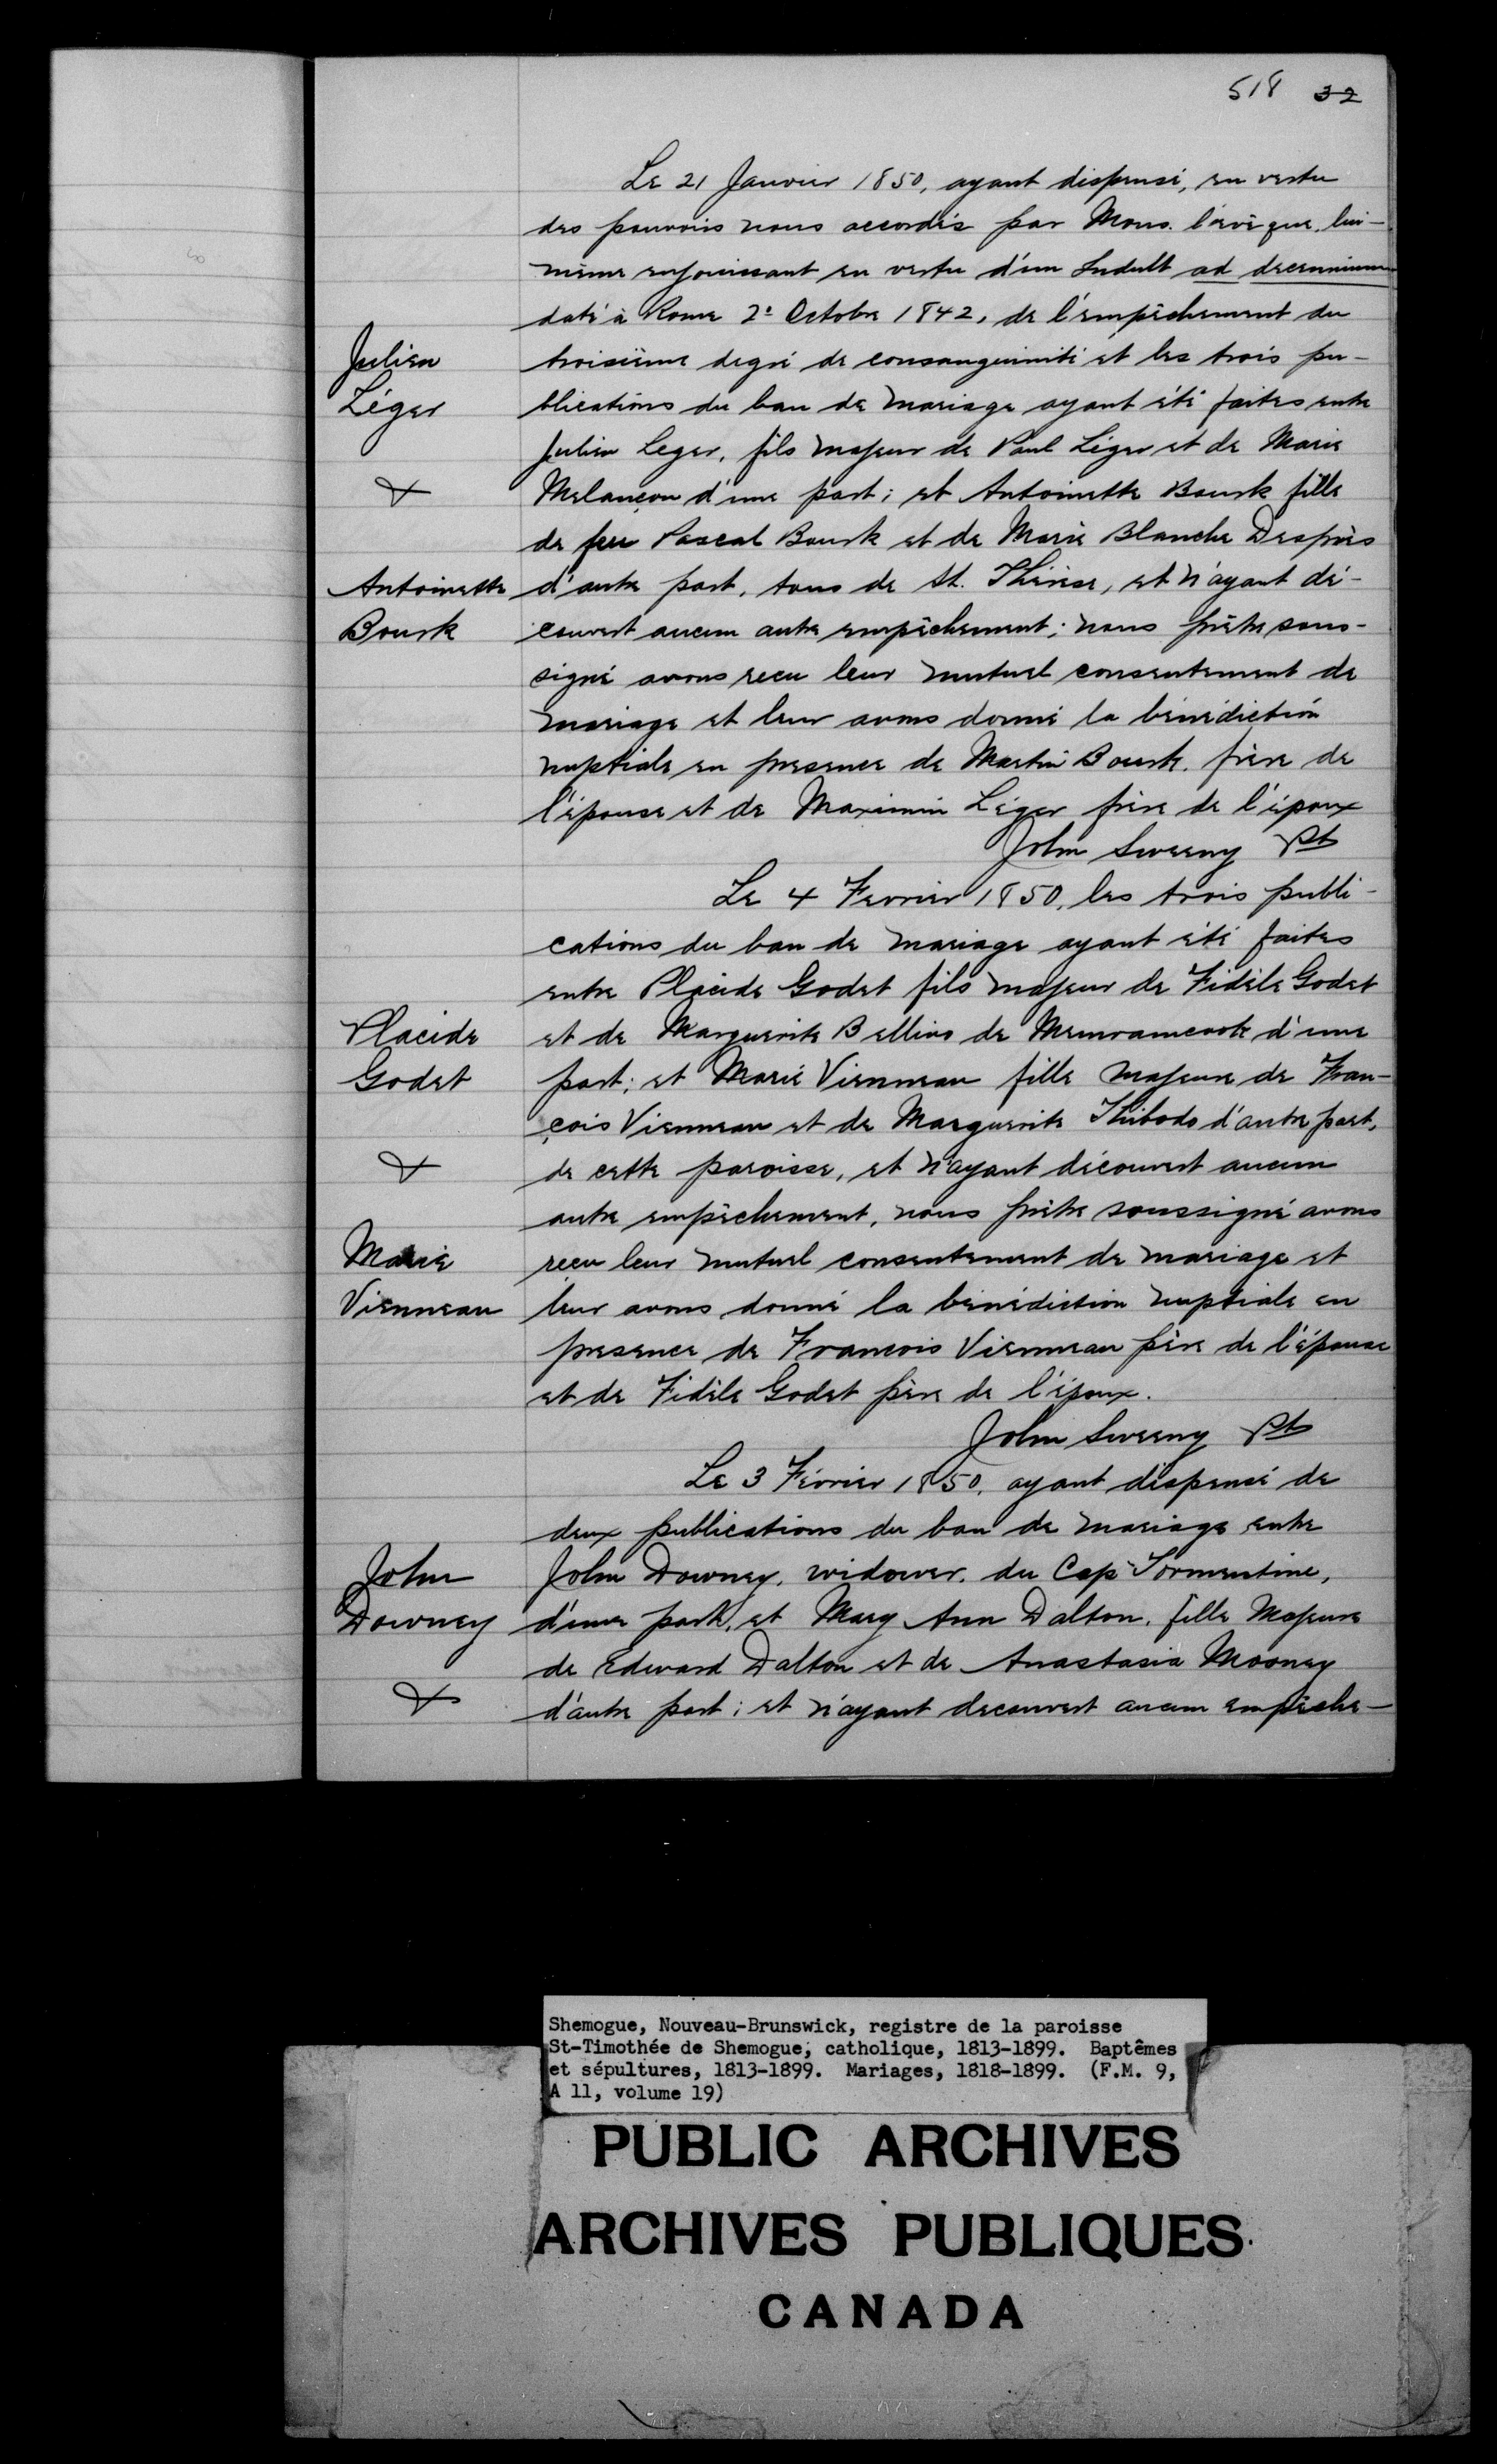 518 32
Le 21 Janvier 1850, ayant dispensé, en vertu
des pouvoirs nous accordés par Mons. l'évêque, lui-
même enjouissant en vertu d'un Indult ad decennium
daté à Rome 2e Octobre 1842, de l'empêchement du
troisième degré de consanguinité et les trois pu-
blications du ban de mariage ayant été faites entre
Julien Leger, fils majeur de Paul Léger et de Marie
Melançon d'une part; et Antoinette Bourk fille
de feu Pascal Bourk et de Marie Blanche Després
d'autre part, tous de St. Thérèse, et n'ayant dé-
couvert aucun autre empêchement; nous prêtre sous-
signé avons recu leur mutuel consentement de
mariage et leur avons donné la bénédiction
nuptiale en presence de Martin Bourk, frère de
l'épouse et de Maximin Léger frère de l'époux
John Sweeny Pt
Julien
Léger
&
Antoinette
Bourk
Le 4 Fevrier 1850, les trois publi-
cations du ban de mariage ayant été faites
entre Placide Godet fils majeur de Fidèle Godet
et de Marguerite Bellivo de Memramcook d'une
part; et Marie Vienneau fille majeure de Fran-
çois Vienneau et de Marguerite Thibodo d'autre part,
de cette paroisse, et n'ayant découvert aucun
autre empêchement, nous prêtre soussigné avons
reçu leur mutuel consentement de mariage et
leur avons donné la bénédiction nuptiale en
presence de Francois Vienneau père de l'épouse
et de Fidèle Godet père de l'époux.
John Sweeny Pt
Placide
Godet
&
Marie
Vienneau
Le 3 Février 1850, ayant dispensé de
deux publications du ban de mariage entre
John Downey, widower, du Cap Tormentine,
d'une part, et Mary Ann Dalton, fille Majeure
de Edward Dalton et de Anastasia Mooney
d'autre part; et n'ayant decouvert aucun empêche-
John
Downey
&
Shemogue, Nouveau-Brunswick, registre de la paroisse
St-Timothée de Shemogue, catholique, 1813-1899. Baptêmes
et sépultures, 1813-1899. Mariages, 1818-1899. (F.M. 9,
A 11, volume 19)
PUBLIC ARCHIVES
ARCHIVES PUBLIQUES
CANADA